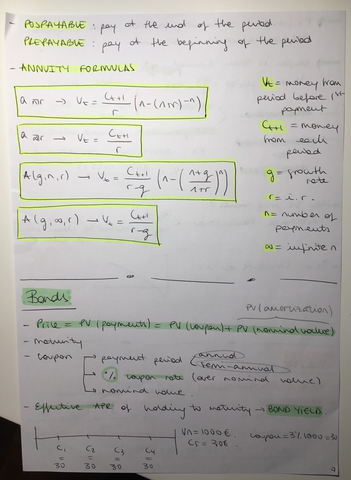 - POSPAYABLE : pay at the end of the period
PREPAYABLE : pay at the beginning of the period
- ANNUITY FORMULAS
a n¬r → Vt = Ct+1 / r (1-(1+r)^-n)
a ∞¬r → Vt = Ct+1 / r
A(g,n,r) → V0 = Ct+1 / r-g (1-(1+g / 1+r)^n)
A(g,∞,r) → V0 = Ct+1 / r-g
Vt = money from
period before 1st
payment
Ct+1 = money
from each
period
g = growth
rate
r = i.r.
n = number of
payments
∞ = infinite n
Bonds
PV (amortization)
- Price = PV (payments) = PV (coupon) + PV (nominal value)
- maturity
- coupon → payment period annual
semi-annual
→ % coupon rate (over nominal value)
→ nominal value.
- Effective APR of holding to maturity → BOND YIELD
Vn = 1000€
Cr = 30€
coupon = 3% 1000 = 30
C1 C2 C3 C4
= = = =
30 30 30 30